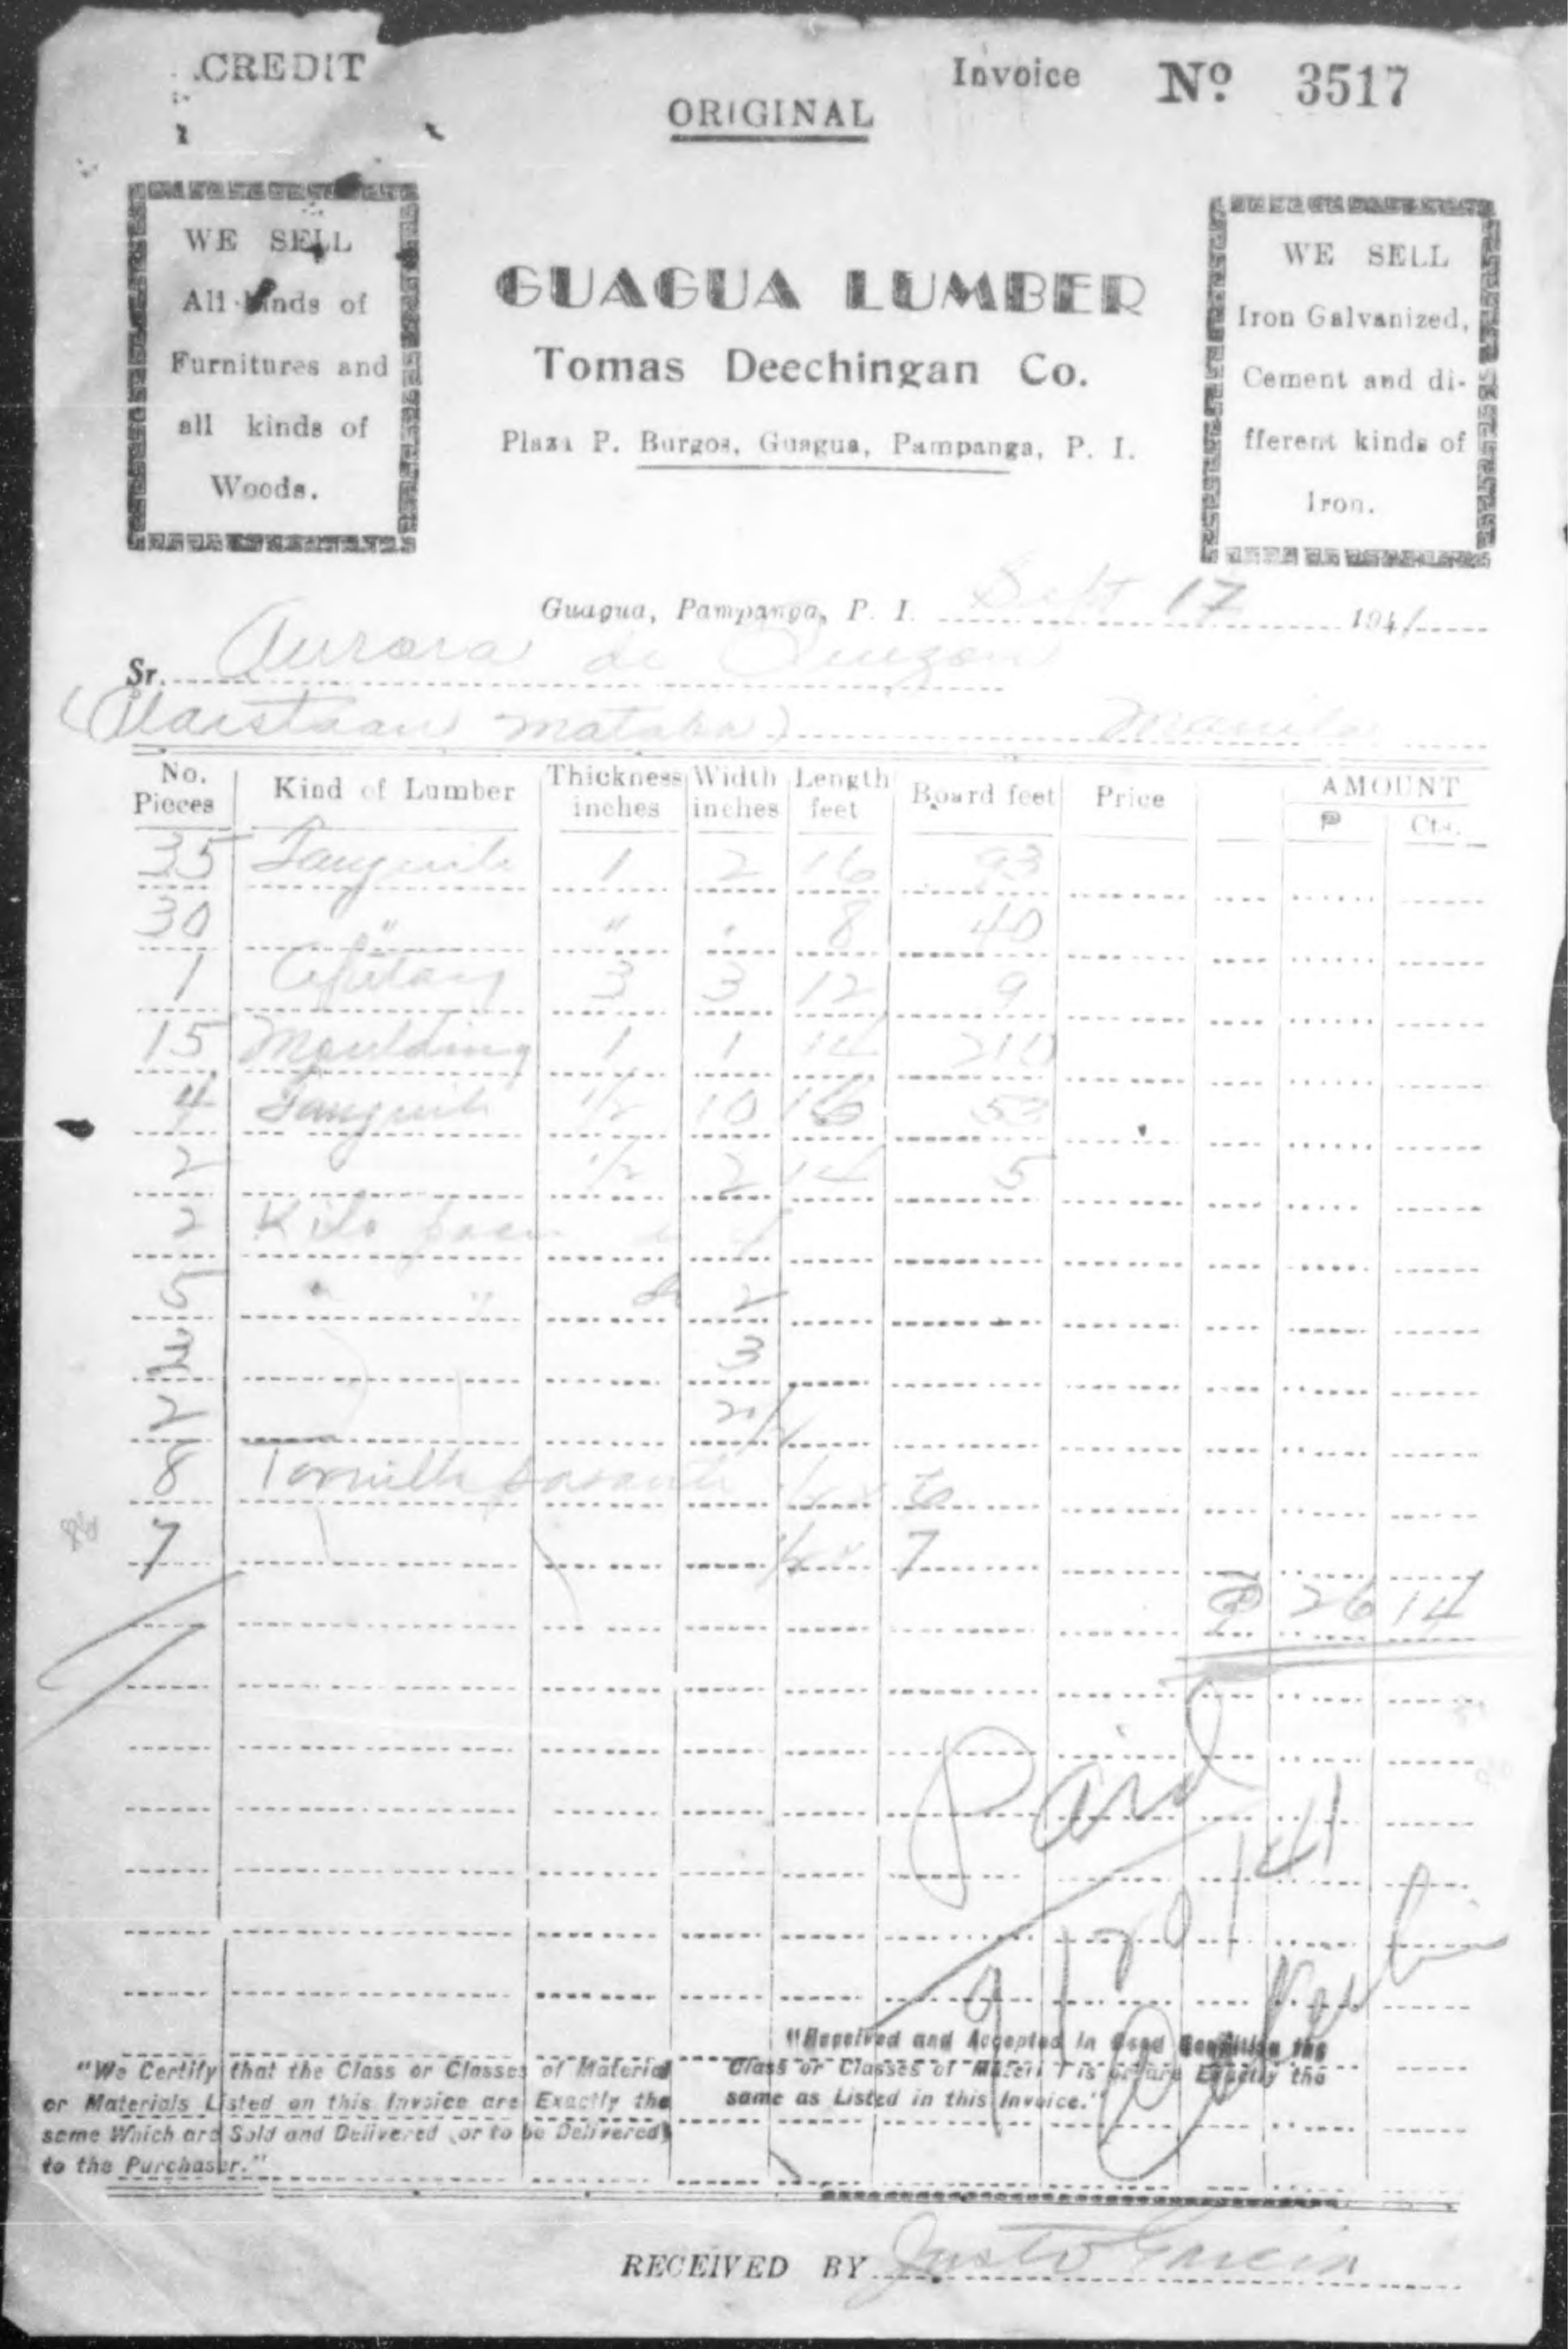 CREDIT
Invoice No. 3517
ORIGINAL
WE SELL
All kinds of
Furnitures and
all kinds of
Woods.
GUAGUA LUMBER
Tomas Deechingan Co.
Plaza P. Burgos, Guagua, Pampanga, P. I.
WE SELL
Iron Galvanized,
Cement and di-
fferent kinds of
Iron.
Guagua, Pampanga, P. I. Sept 17 1941
Sr. Aurora de Quezon
Manila
No. Pieces Kind of Lumber Thickness inches Width inches Length feet Board feet Price AMOUNT
₱ Cts.
35 Tanguile 1 2 16 93
30 " " " 8 40
1 Apitong 3 3 12 9
15 Moulding 1 1 14 210
4 Tanguile 1/2 10 16 53
2 1/2 2 14 5
2 Kilo
5 " " de 2
3
2 2 1/2
8 6
7 7
₱ 26 14
Paid
9/20/41
"We Certify that the Class or Classes of Material
or Materials Listed on this Invoice are Exactly the
same Which are Sold and Delivered (or to be Delivered)
to the Purchaser."
"Received and Accepted in Good Condition the
Class or Classes of Materi is or are Exactly the
same as Listed in this Invoice."
RECEIVED BY Justo Garcia